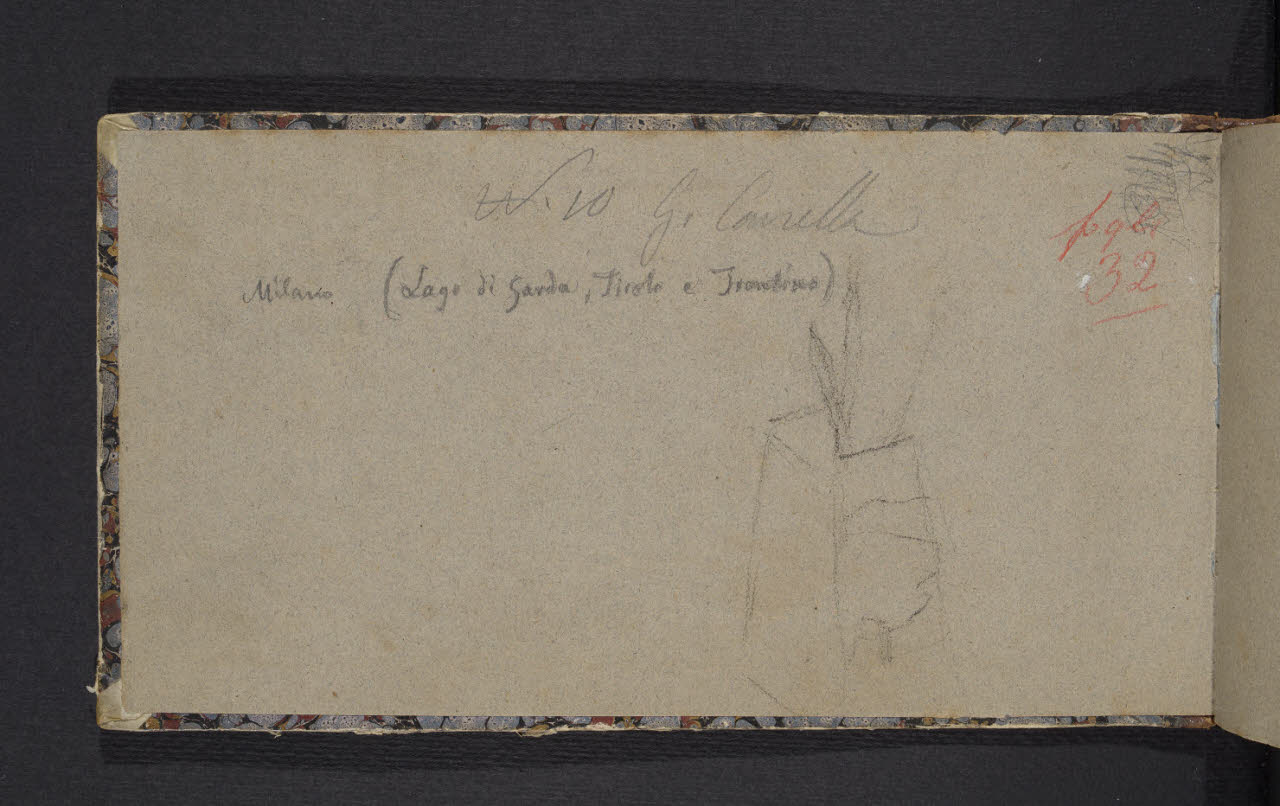 N. 10 G. Canella
Milano (Lago di Garda, Tirolo e Trentino)
32